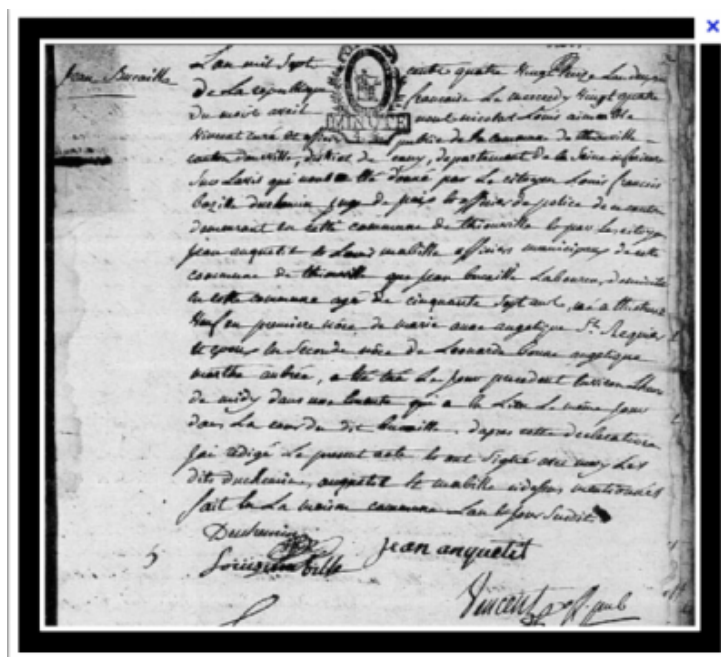 Jean Buraille
L'an mil sept cent quatre vingt treize L'an deuxieme
de La republique francaise Le mercredy vingt quatre
du mois avril nous nicolas Louis aimable
Vincent curé et officier public de la commune de thiouville
canton douville, district de cany, departement de la Seine inferieure
Sur Lavis qui nous a été donné par Le citoyen Louis francois
bazille duchemin juge de paix et officier de police de ce canton
demeurant en cette commune de thiouville et par les citoyens
jean anquetil et Louis mabille officiers municipaux de cette
commune de thiouville que jean buraille Laboureur, domicilié
en cette commune agé de cinquante Sept ans, né a
Veuf en premiere noce de marie anne angelique St Requier
et epoux en Seconde noce de Leonarde bonne angelique
marthe aubrée, a été tué Le jour precedent
de midy dans une qui a eu Lieu Le même jour
dans La cour de dit buraille. d'apres cette declaration
j'ai redigé Le present acte et ont signé avec moy Les
dits duchemin, anquetil et mabille cidessus mentionnés
fait en La maison commune L'an et jour Susdit
Duchemin
Louis mabille jean anquetil
Vincent off. publ
MINUTE